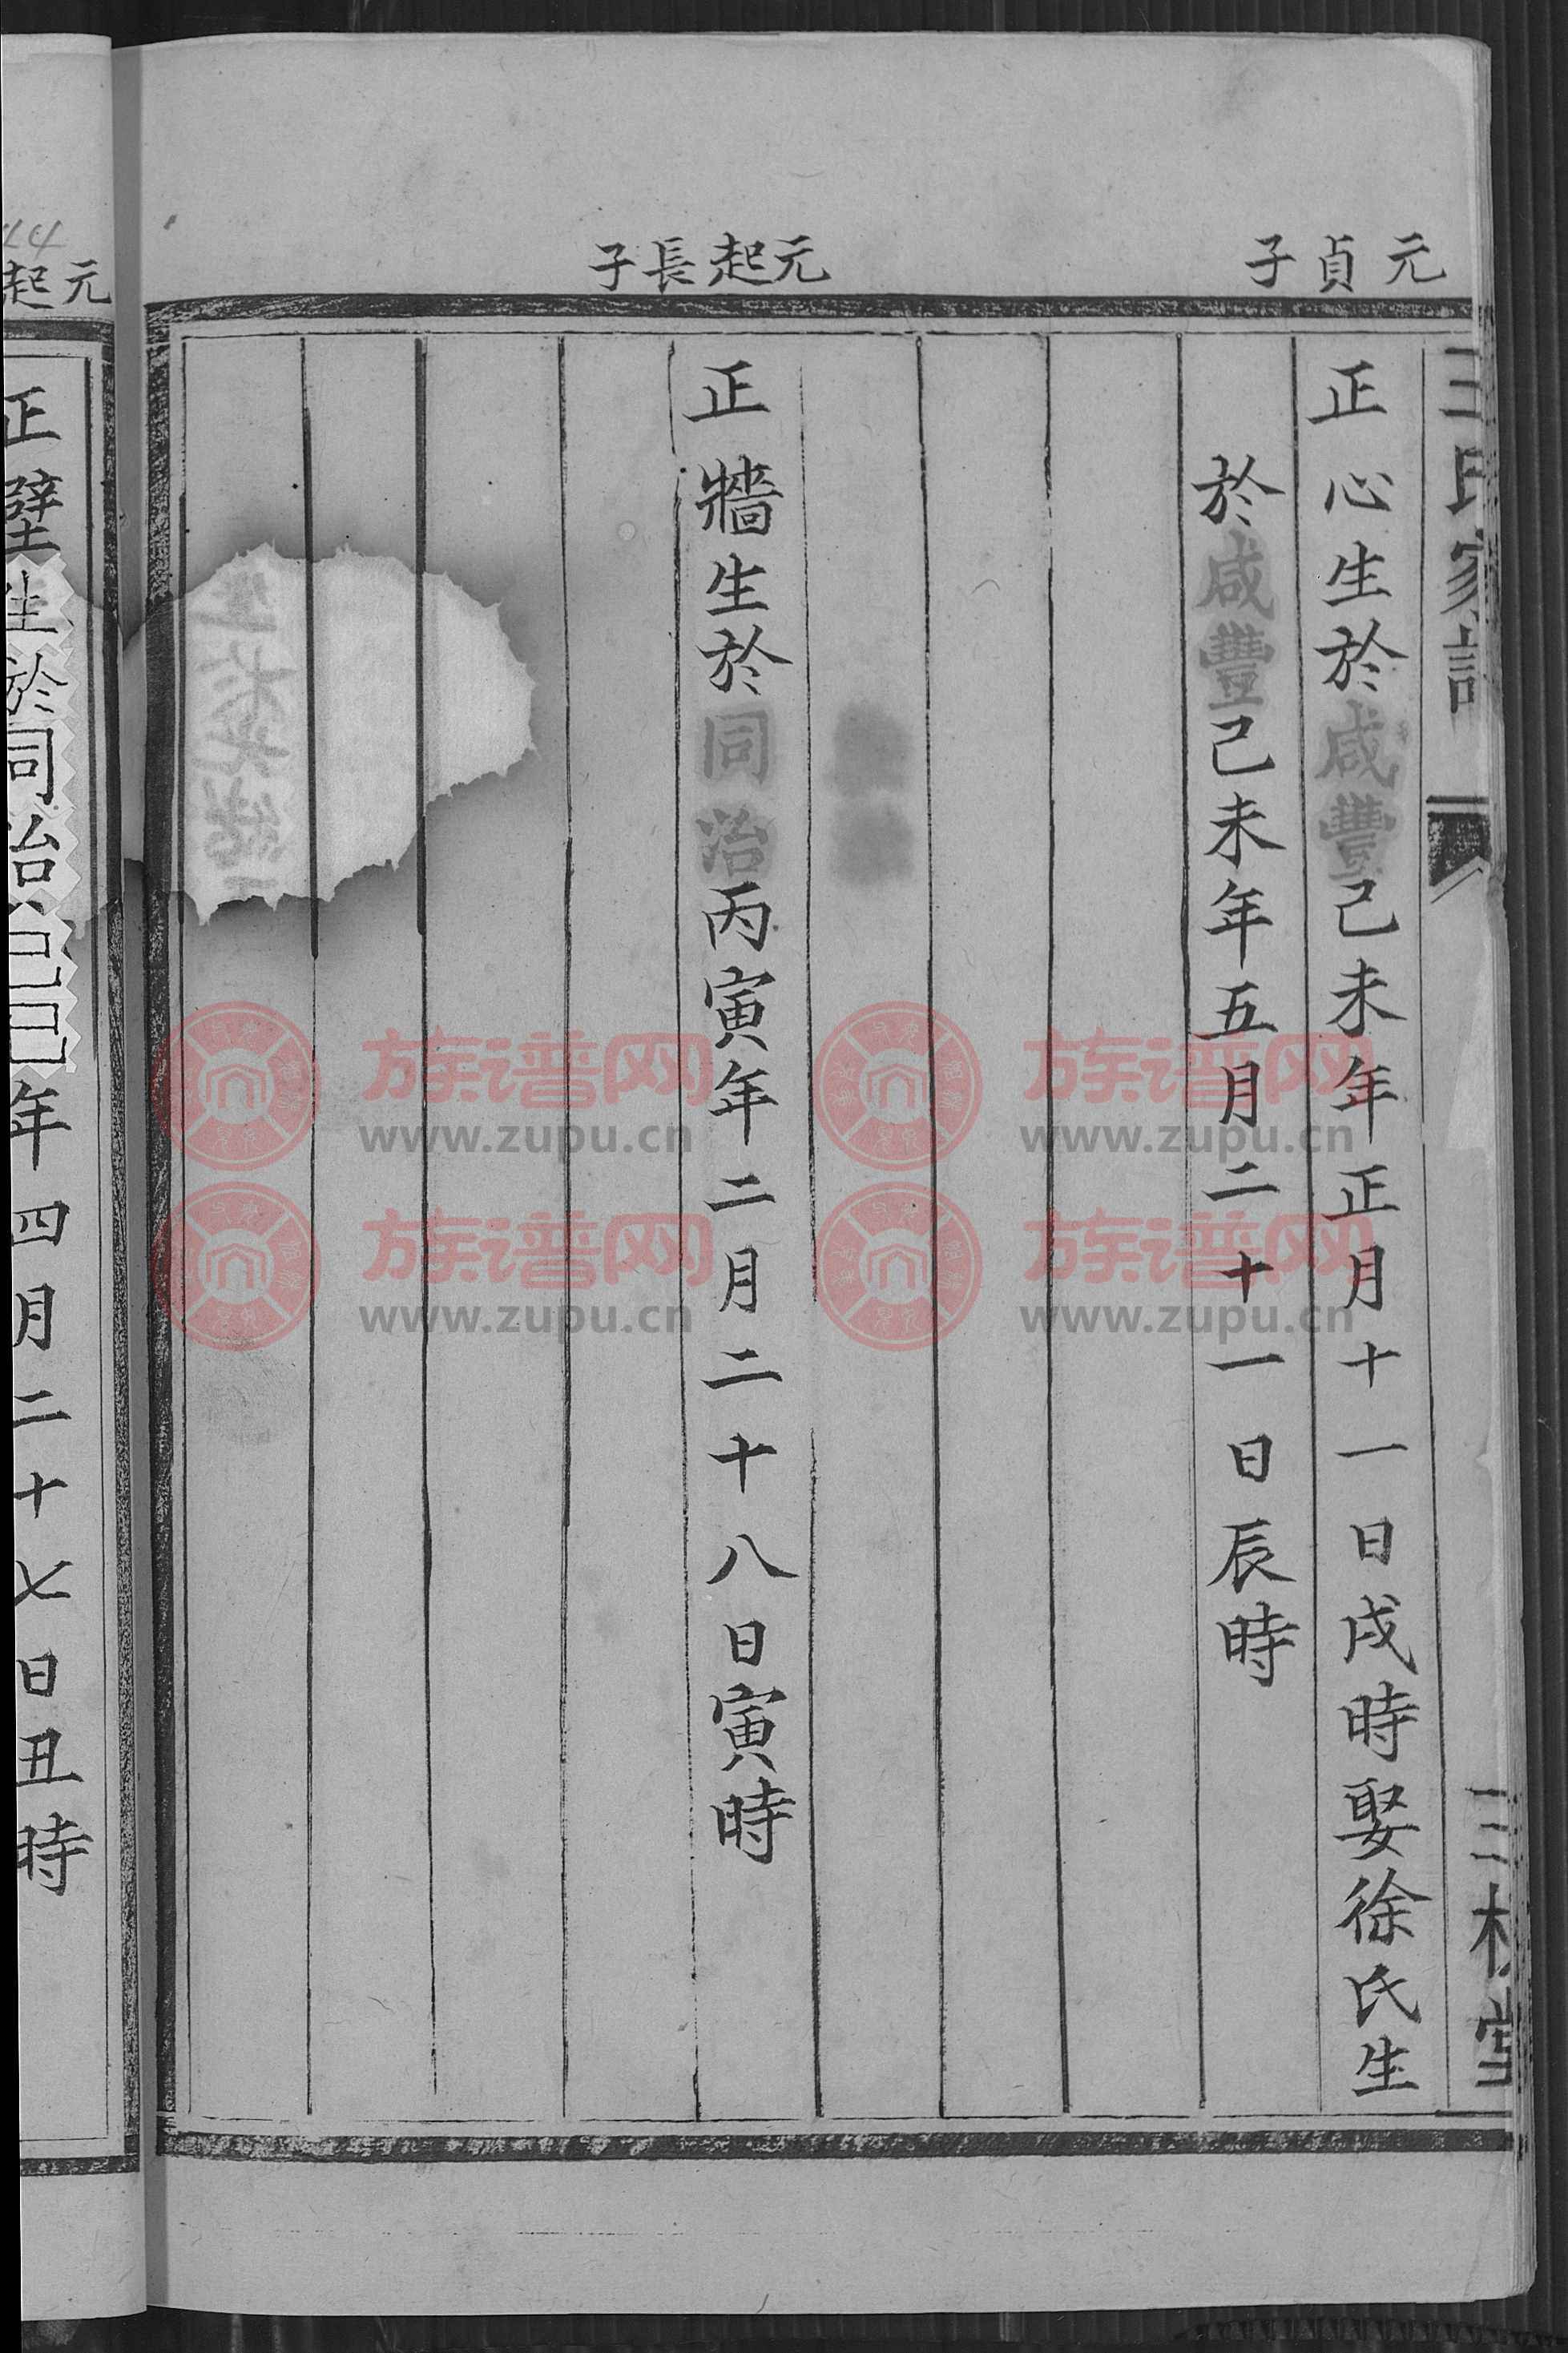 王氏家譜
三槐堂
元貞子
正心生於咸豐己未年正月十一日戌時娶徐氏生
於咸豐己未年五月二十一日辰時
元起長子
正牆生於同治丙寅年二月二十八日寅時
元起
正壁生於同治己巳年四月二十七日丑時
族谱网
www.zupu.cn
族谱网
www.zupu.cn
族谱网
www.zupu.cn
族谱网
www.zupu.cn